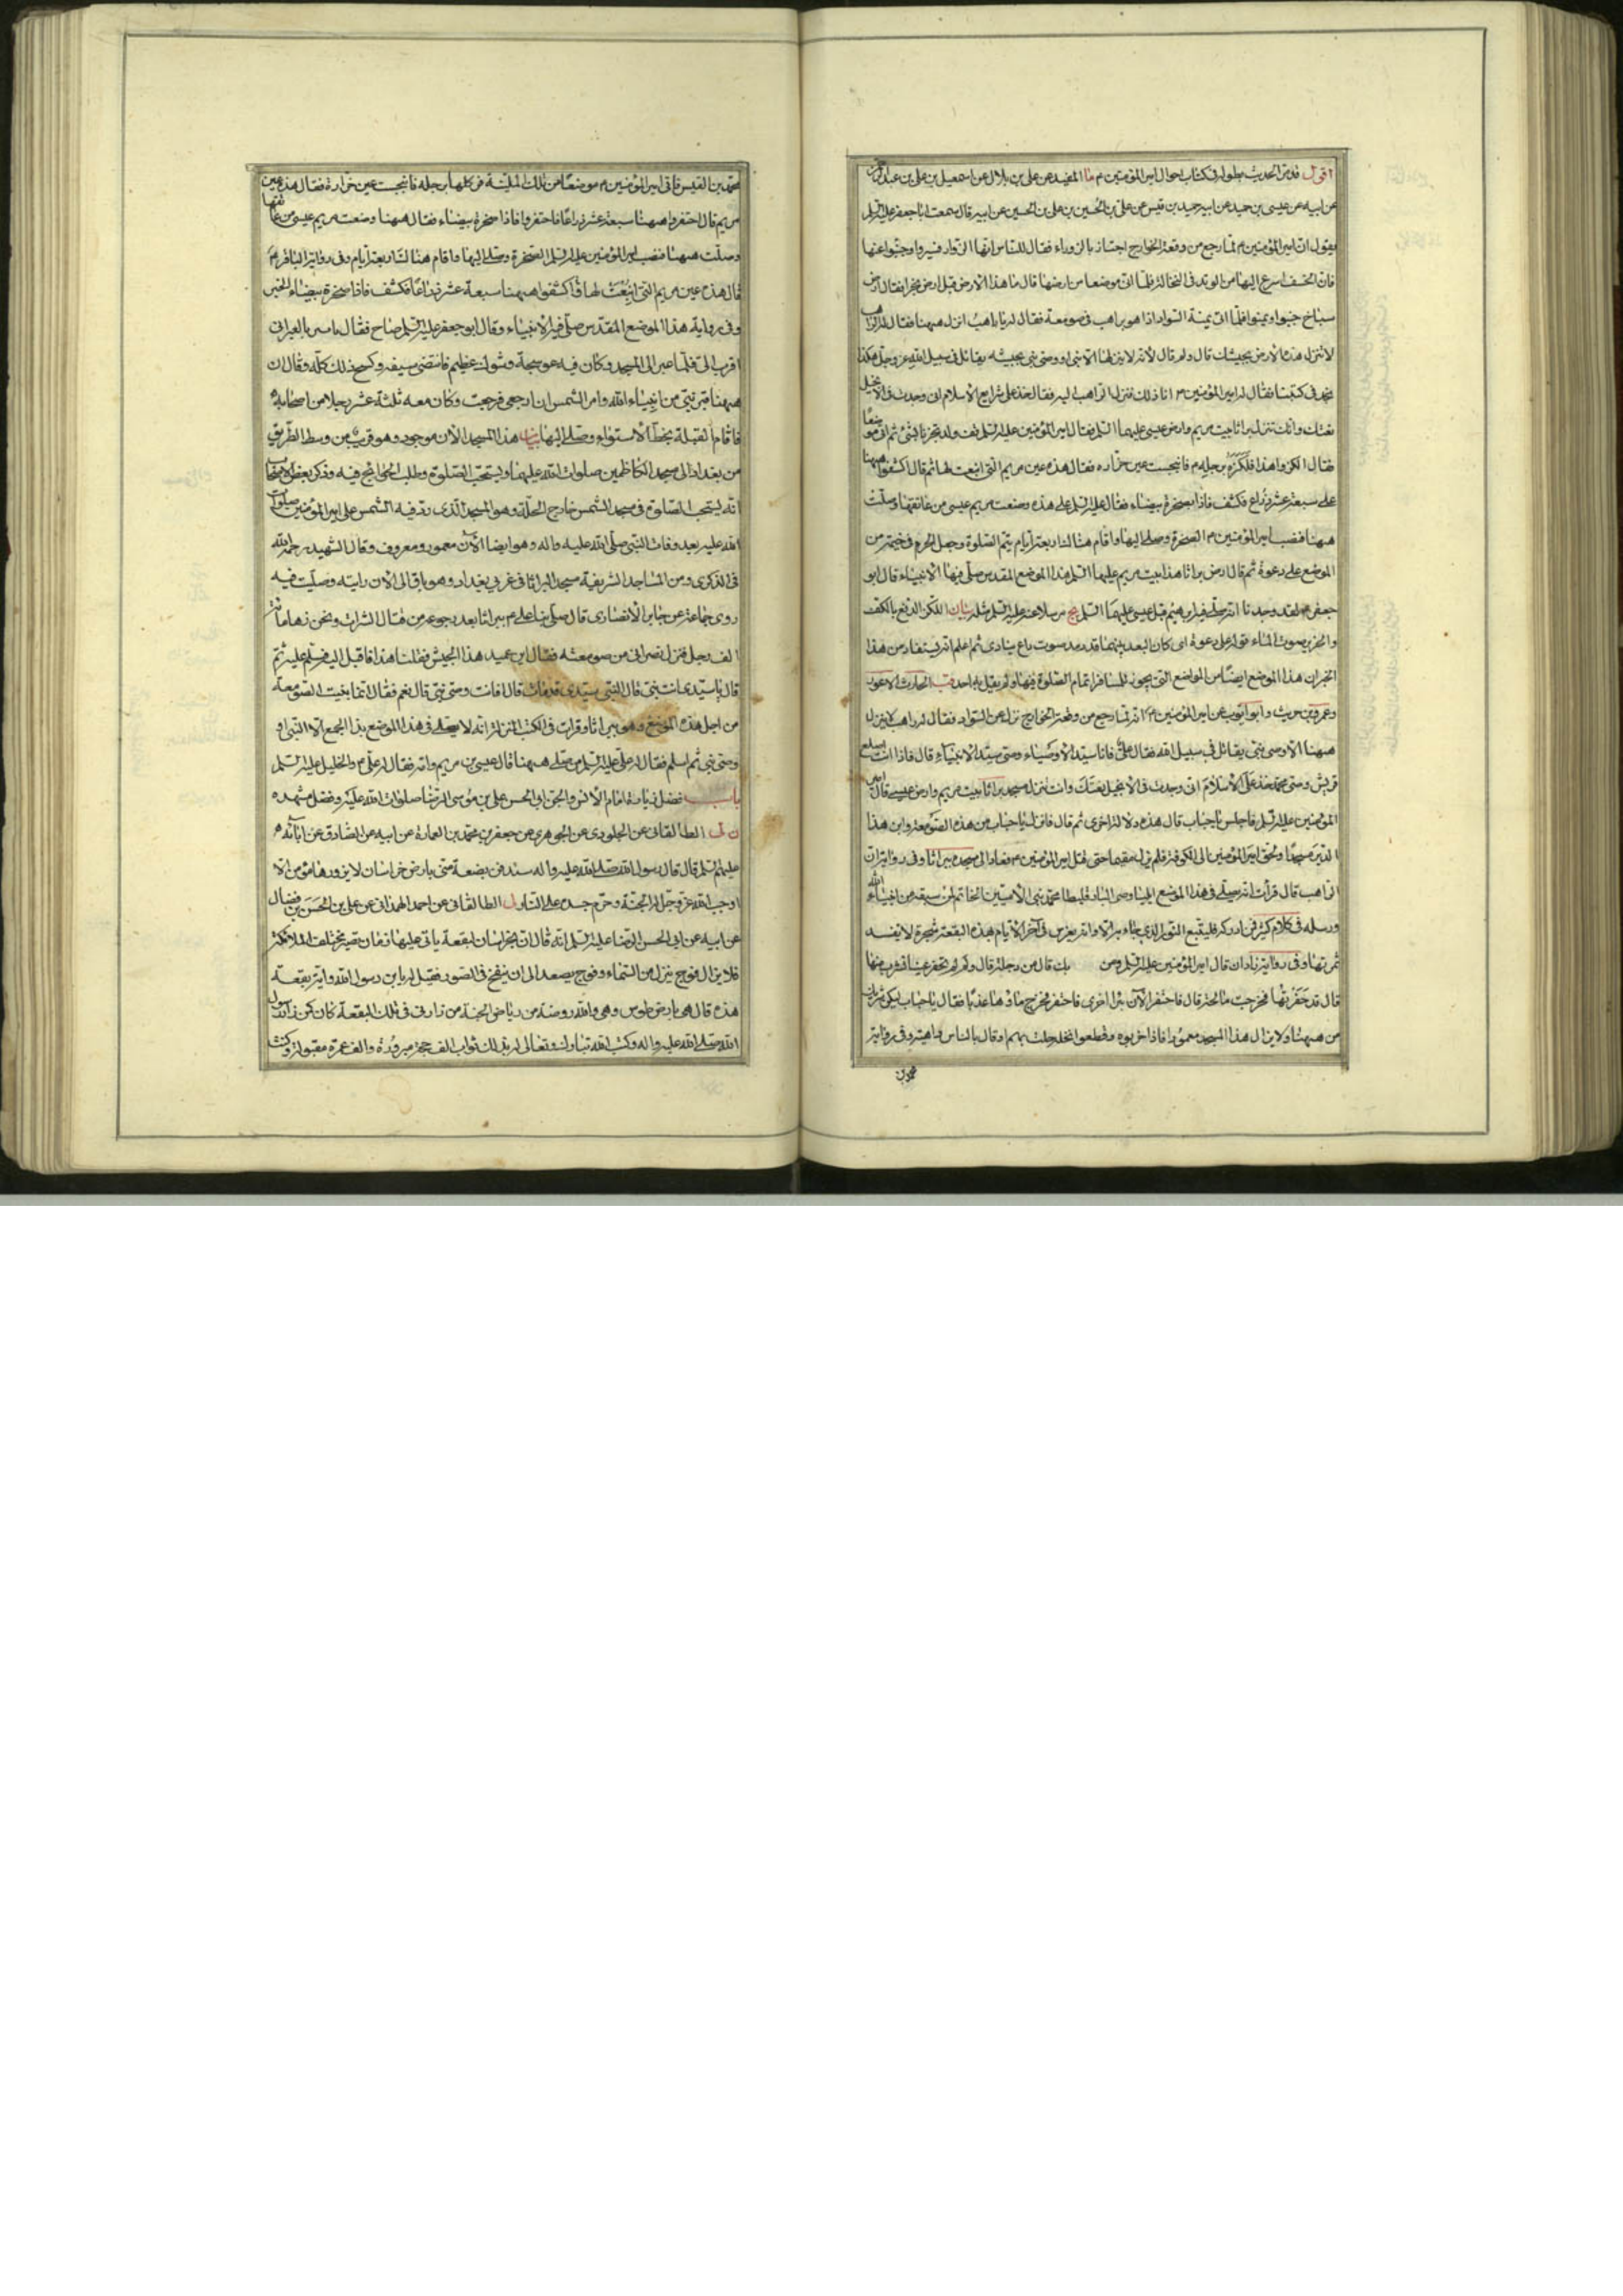 اقول قد مر الحديث بطوله فى كتاب احوال امير المؤمنين م ما المفيد عن على بن بلال عن اسمعيل بن على بن عبد الرحمن
عن ابيه عن عيسى بن حميد عن ابيه حميد بن قيس عن على بن الحسين بن على بن الحسين عن ابيه قال سمعت ابا جعفر عليه السلم
يقول ان امير المؤمنين م لما رجع من وقعة الخوارج اجتاز بالزوراء فقال للناس انها الزوراء فسيروا وجنبوا عنها
فان الخسف اسرع اليها من الوتد فى النخالة فلما اتى موضعا من ارضها قال ما هذا الارض قيل ارض بحرا فقال ارض
سباخ جنبوا ويمنوا فلما اتى يمنة السواد اذا هو براهب فى صومعة فقال له يا راهب انزل ههنا فقال له الراهب
لا تنزل هذه الارض بجيشك قال ولم قال لانه لا ينزلها الا نبى او وصى نبى بجيشه يقاتل فى سبيل الله عز وجل هكذا
نجد فى كتبنا فقال له امير المؤمنين م انا ذلك فنزل الراهب اليه فقال خذ على شرايع الاسلام انى وجدت فى الانجيل
نعتك وانك تنزل براثا بيت مريم وارض عيسى عليهما السلم فقال امير المؤمنين عليه السلم قف ولا تخبرنا بشئ ثم اتى موضعا
فقال الكزوا هذا فلكزه برجله م فانبجست عين خراره فقال هذه عين مريم التى انبعت لها ثم قال اكشفوا ههنا
على سبعة عشر ذراع فكشف فاذا بصخرة بيضاء فقال عليه السلم على هذه وضعت مريم عيسى من عاتقها وصلت
ههنا فنصب امير المؤمنين م الصخرة وصلى اليها واقام هنالك اربعة ايام يتم الصلوة وجعل الحرم فى خيمة من
الموضع على دعوة ثم قال ارض براثا هذا بيت مريم عليها السلم هذا الموضع المقدس صلى فيها الانبياء قال ابو
جعفر م ولقد وجدنا انه صلى فيه ابرهيم قبل عيسى عليهما السلم يج مرسلا عنه عليه السلم مثله بيان اللكز الدفع بالكف
والخرير صوت الماء قوله على دعوة اى كان البعد بينهما قدر مد صوت داع ينادى ثم اعلم انه يستفاد من هذا
الخبر ان هذا الموضع ايضا من المواضع التى يجوز للمسافر اتمام الصلوة فيها ولم يقل به احد قب الحارث الاعور
وعمرو بن حريث وابو ايوب عن امير المؤمنين م انه لما رجع من وقعة الخوارج نزل عن السواد فقال له راهب لا ينزل
ههنا الا وصى نبى يقاتل فى سبيل الله فقال على فانا سيد الاوصياء وصى سيد الانبياء قال فاذا انت اصلع
قريش وصى محمد خذ على الاسلام انى وجدت فى الانجيل نعتك وانت تنزل مسجد براثا بيت مريم وارض عيسى قال امير
المؤمنين عليه السلم فاجلس يا حباب قال هذه دلالة اخرى ثم قال فانزل يا حباب من هذه الصومعة وابن هذا
الدير مسجدا ولحق امير المؤمنين الى الكوفة فلم يزل مقيما حتى قتل امير المؤمنين م فعاد الى مسجده ببراثا وفى رواية ان
الراهب قال قرأت انه يصلى فى هذا الموضع ايليا وصى البار قليطا محمد نبى الاميين الخاتم لمن سبقه من انبياء الله
ورسله فى كلام كثير فمن ادركه فليتبع النور الذى جاء به الا وانه يغرس فى آخر الايام بهذه البقعة شجرة لا يفسد
ثمرتها وفى رواية زاذان قال امير المؤمنين عليه السلم ومن بك قال من دجلة قال ولم لم تحفر عينا فتشرب منها
قال قد حفرتها فخرجت مالحة قال فاحتفر الآن بئرا اخرى فاحتفر فخرج ماؤها عذبا فقال يا حباب ليكن شربك
من ههنا ولا يزال هذا المسجد معمورا فاذا خربوه وقطعوا نخله حلت بهم او قال بالناس داهية وفى رواية
محمد بن
محمد بن القيس فاتى امير المؤمنين م موضعا من تلك الملبنة فركلها برجله فانبجست عين خرارة فقال هذه عين
مريم قال احتفروا ههنا سبعة عشر ذراعا فاحتفروا فاذا صخرة بيضاء فقال ههنا وضعت مريم عيسى من عاتقها
وصلت ههنا فنصب امير المؤمنين عليه السلم الصخرة وصلى اليها واقام هنالك اربعة ايام وفى رواية الباقر م
قال هذه عين مريم التى انبعت لها واكشفوا ههنا سبعة عشر ذراعا فكشف فاذا صخرة بيضاء الخبر
وفى رواية هذا الموضع المقدس صلى فيه الانبياء وقال ابو جعفر عليه السلم صاح فقال يا بئر بالعبرانى
اقرب الى فلما عبر الى المسجد وكان فيه عوسجة وشوك عظيم فانتضى سيفه وكسح ذلك كله وقال ان
ههنا قبر نبى من انبياء الله وامر الشمس ان ارجعى فرجعت وكان معه ثلثة عشر رجلا من اصحابه
فاقام القبلة بخط الاستواء وصلى اليها بيان هذا المسجد الآن موجود وهو قريب من وسط الطريق
من بغداد الى مسجد الكاظمين صلوات الله عليهما ويستحب الصلوة وطلب الحوائج فيه وذكر بعض الاصحاب
انه يستحب الصلوة فى مسجد الشمس خارج الحلة وهو المسجد الذى رد فيه الشمس على امير المؤمنين صلوات
الله عليه بعد وفات النبى صلى الله عليه واله وهو ايضا الآن معمور ومعروف وقال الشهيد رحمه الله
فى الذكرى ومن المساجد الشريفة مسجد البراثا فى غربى بغداد وهو باق الى الآن رايته وصليت فيه
روى جماعة عن جابر الانصارى قال صلى بنا على م ببراثا بعد رجوعه من قتال الشراة ونحن زهاء مائة
الف رجل فنزل نصرانى من صومعته فقال اين عميد هذا الجيش فقلنا هذا فاقبل اليه فسلم عليه ثم
قال يا سيدى انت نبى قال النبى سيدى قد مات قال افانت وصى نبى قال نعم فقال انما بنيت الصومعة
من اجل هذه الموضع وهو براثا وقرات فى الكتب المنزلة انه لا يصلى فى هذا الموضع بذا الجمع الا النبى او
وصى نبى ثم اسلم فقال له على عليه السلم من صلى ههنا قال عيسى بن مريم وامه فقال له على م والخليل عليه السلم
باب فضل زيارة امام الانس والجن ابى الحسن على بن موسى الرضا صلوات الله عليه وفضل مشهده
ن لى الطالقانى عن الجلودى عن الجوهرى عن جعفر بن محمد بن العمارة عن ابيه عن الصادق عن آبائه
عليهم السلم قال قال رسول الله صلى الله عليه واله ستدفن بضعة منى بارض خراسان لا يزورها مؤمن الا
اوجب الله عز وجل له الجنة وحرم جسده على النار ل الطالقانى عن احمد الهمدانى عن على بن الحسن بن فضال
عن ابيه عن ابى الحسن الرضا عليه السلم انه قال ان بخراسان لبقعة ياتى عليها زمان تصير مختلف الملائكة
فلا يزال فوج ينزل من السماء وفوج يصعد الى ان ينفخ فى الصور فقيل له يا بن رسول الله واية بقعة
هذه قال هى بارض طوس وهى والله روضة من رياض الجنة من زارنى فى تلك البقعة كان كمن زار رسول
الله صلى الله عليه واله وكتب الله تبارك وتعالى له بذلك ثواب الف حجة مبرورة والف عمرة مقبولة وكنت